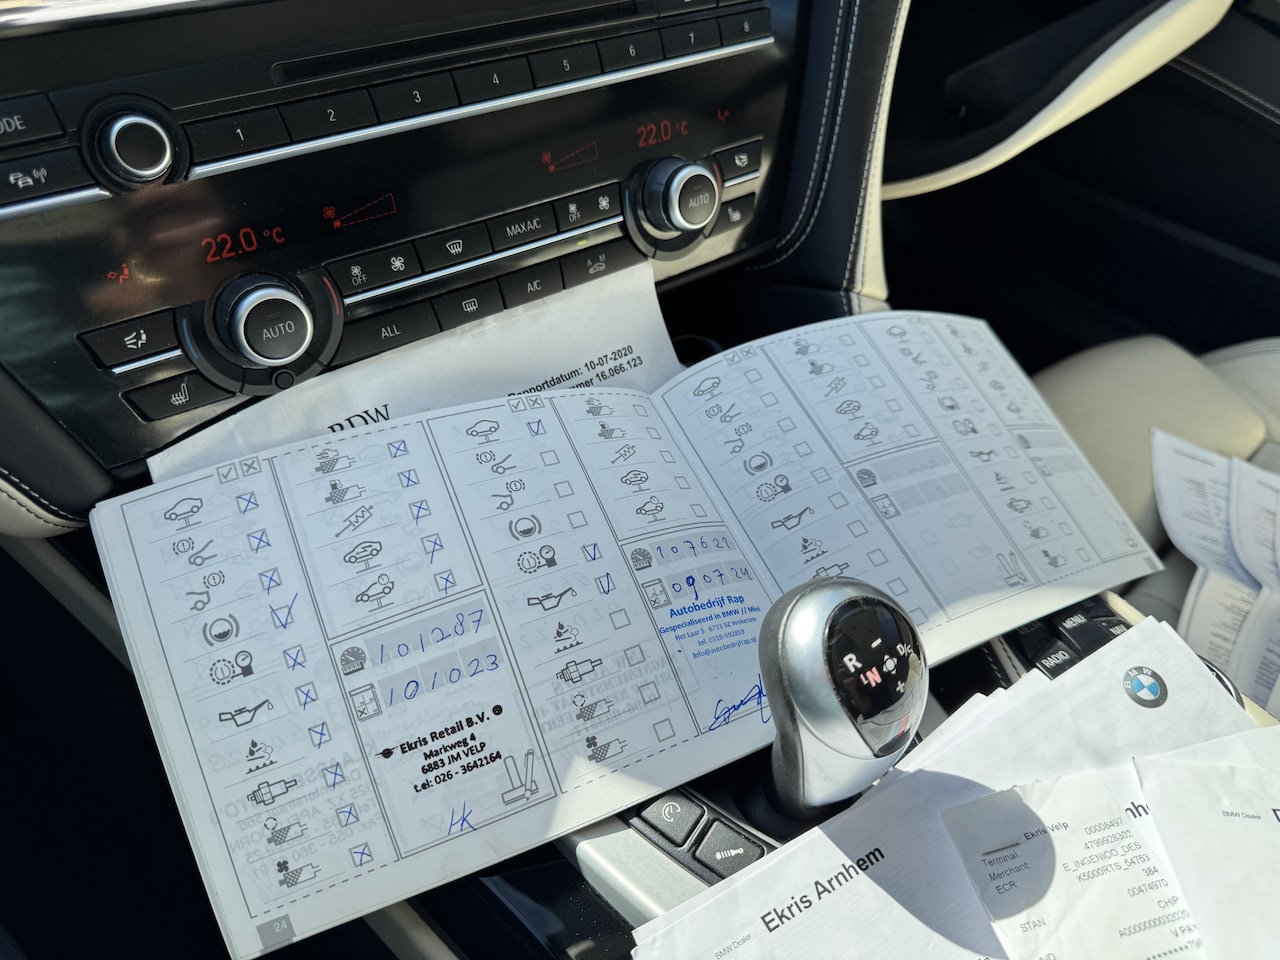 1
2
3
4
5
6
7
8
22.0 °C
22.0 °C
AUTO
AUTO
OFF
MAX A/C
OFF
A M
ALL
A/C
10-07-2020
16.066.123
101287
101023
Ekris Retail B.V.
Markweg 4
6883 JM VELP
tel: 026 - 3642164
HK
24
107621
090724
Autobedrijf Rap
Gespecialiseerd in BMW // Mini
Het Laar 5 6733 BZ Wekerom
tel. 0318-592859
info@autobedrijfrap.nl
R
N
D/S
MENU
RADIO
BMW
BMW Dealer
Ekris Arnhem
Ekris Velp
Terminal 00008497
Merchant 4799928302
ECR E_INGENICO_DES
K5000RTS_54753
384
STAN 00474970
CHIP
A0000000032020
V PAY
BMW Dealer